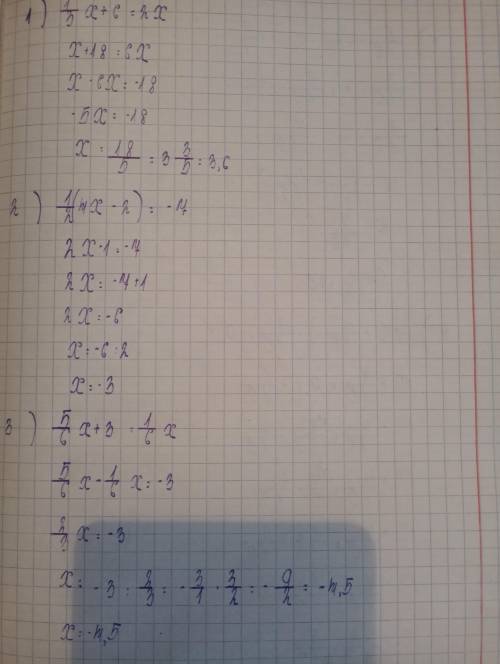 1) 1/3 x + 6 = 2x
x + 18 = 6x
x - 6x = -18
-5x = -18
x = 18/5 = 3 3/5 = 3,6
2) 1/2 (4x - 2) = -7
2x - 1 = -7
2x = -7 + 1
2x = -6
x = -6 : 2
x = -3
3) 5/6 x + 3 = 1/6 x
5/6 x - 1/6 x = -3
2/3 x = -3
x = -3 : 2/3 = - 3/1 · 3/2 = - 9/2 = -4,5
x = -4,5